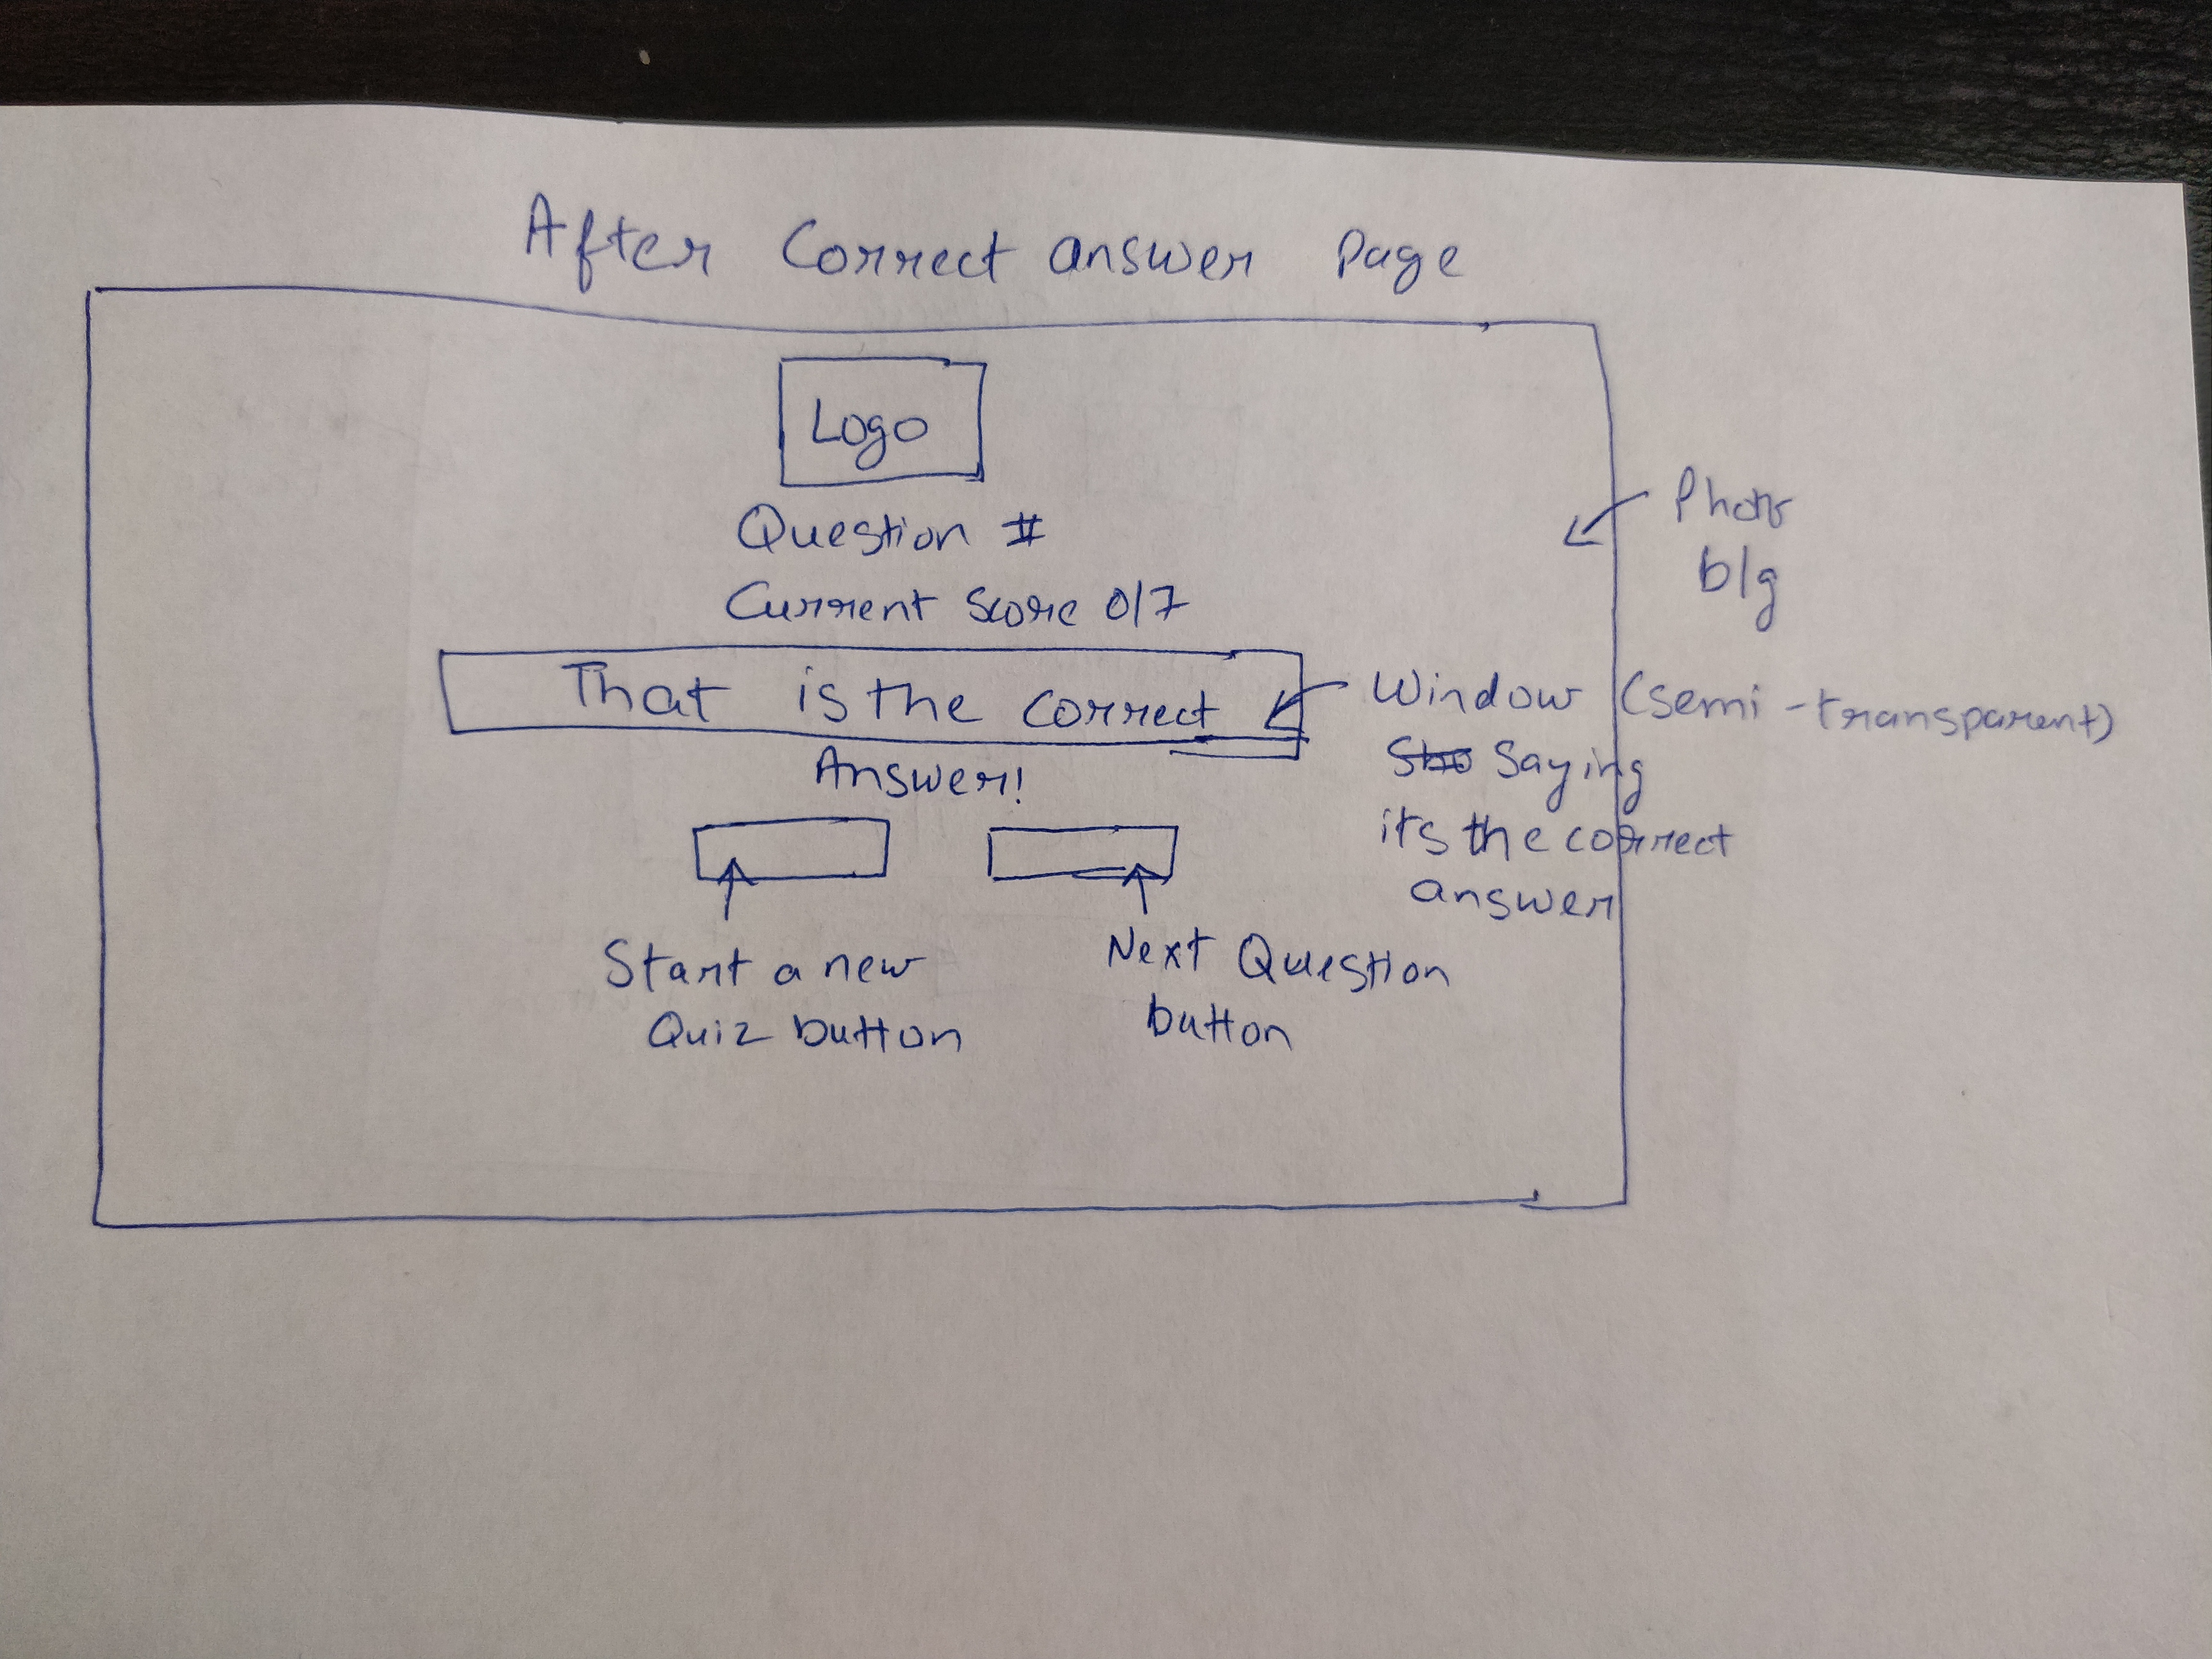 After Correct answer Page
Logo
Question #
Current Score 0/7
That is the correct
Answer!
Photo
b/g
Window (semi-transparent)
Saying
it's the correct
answer
Start a new
Quiz button
Next Question
button